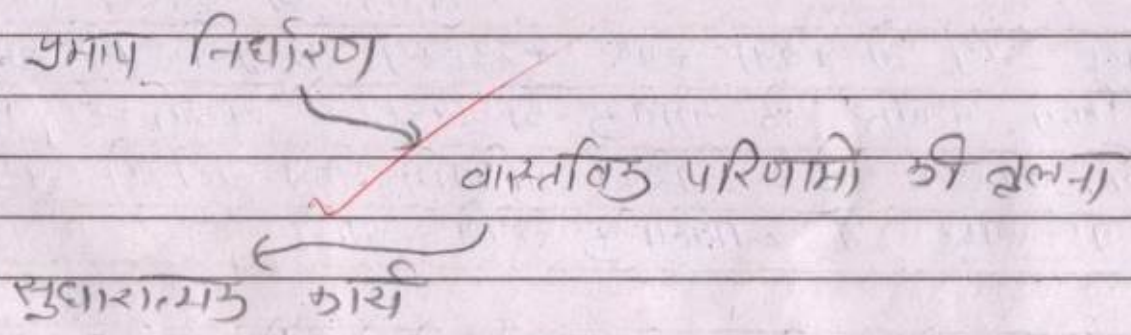 प्रमाप निर्धारण
वास्तविक परिणामो की तुलना
सुधारात्मक कार्य